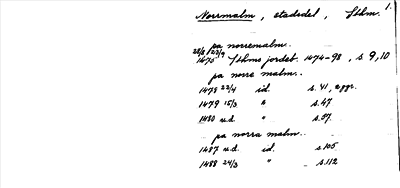 Norrmalm, stadsdel, Sthm. 1.
pa norremalm.
28/8 23/9
1475 Sthms jordeb. 1474-98, s 9, 10
pa norra malm..
1478 22/4 id. s. 41, uppr.
1479 15/3 " s. 47
1480 u.d. " s. 57
pa norra malm..
1487 u.d. id. s 105
1488 24/3 " s. 112